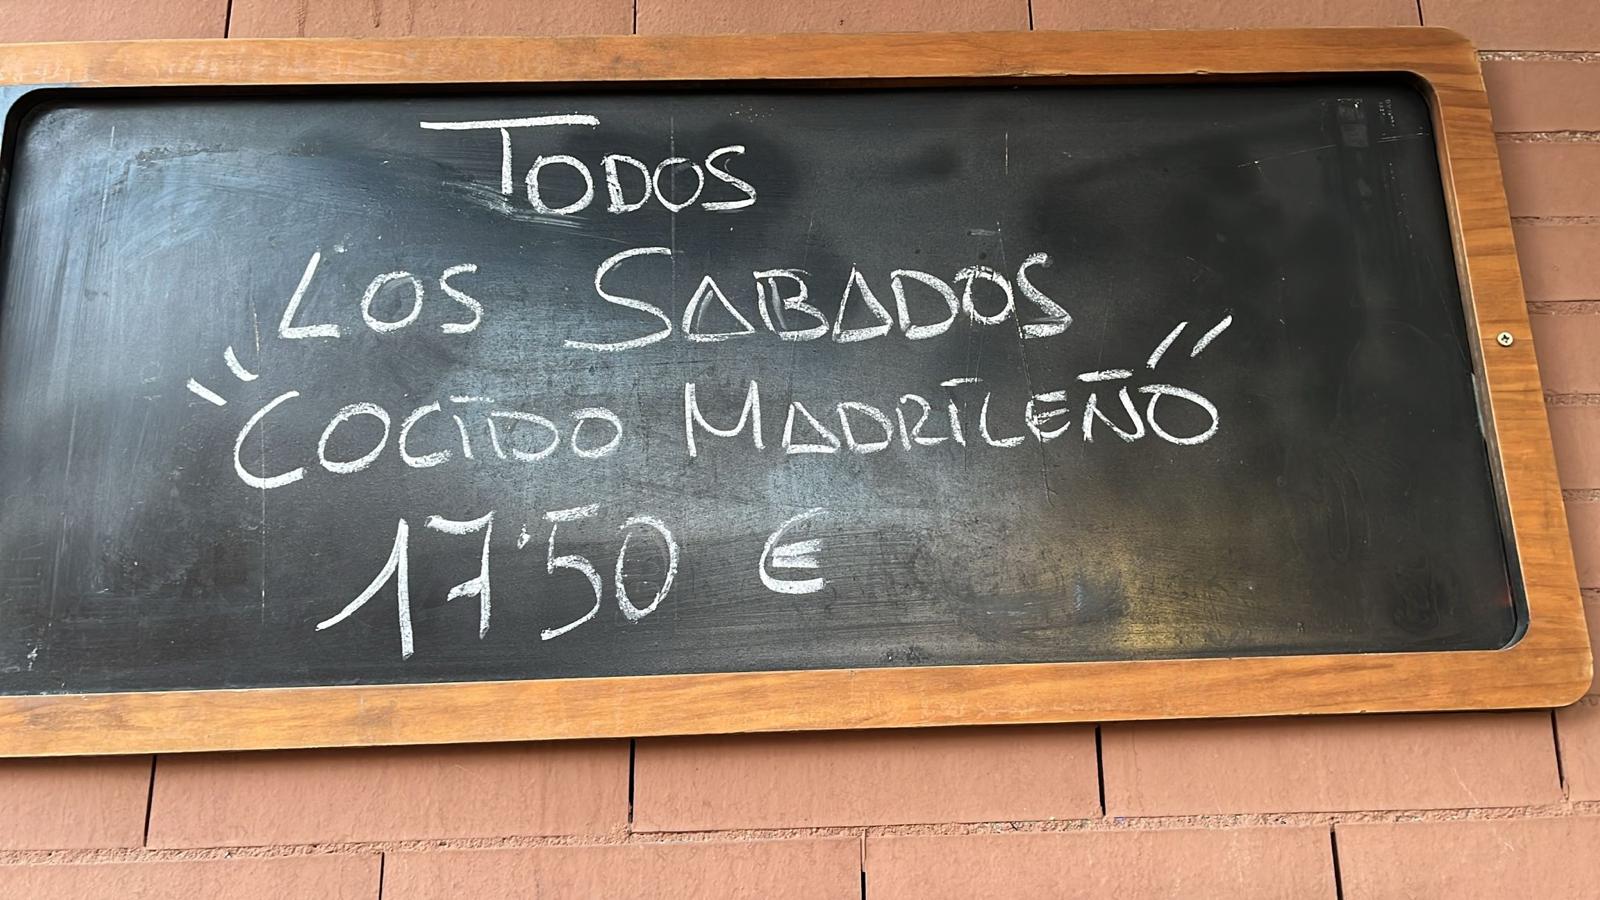 TODOS
LOS SABADOS
"COCIDO MADRILEÑO"
17'50 €